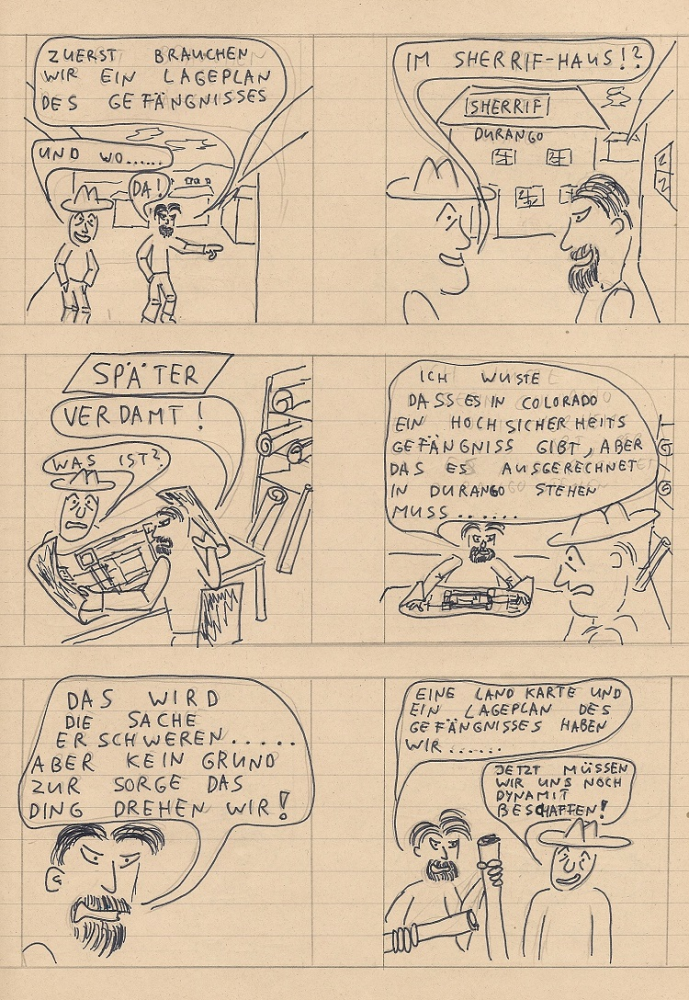 ZUERST BRAUCHEN
WIR EIN LAGEPLAN
DES GEFÄNGNISSES
UND WO......
DA!
IM SHERRIF-HAUS!?
SHERRIF
DURANGO
SPÄTER
VERDAMT!
WAS IST?
ICH WUSTE
DASS ES IN COLORADO
EIN HOCHSICHERHEITS
GEFÄNGNISS GIBT, ABER
DAS ES AUSGERECHNET
IN DURANGO STEHEN
MUSS......
DAS WIRD
DIE SACHE
ERSCHWEREN.....
ABER KEIN GRUND
ZUR SORGE DAS
DING DREHEN WIR!
EINE LAND KARTE UND
EIN LAGEPLAN DES
GEFÄNGNISSES HABEN
WIR......
JETZT MÜSSEN
WIR UNS NOCH
DYNAMIT
BESCHAFFEN!